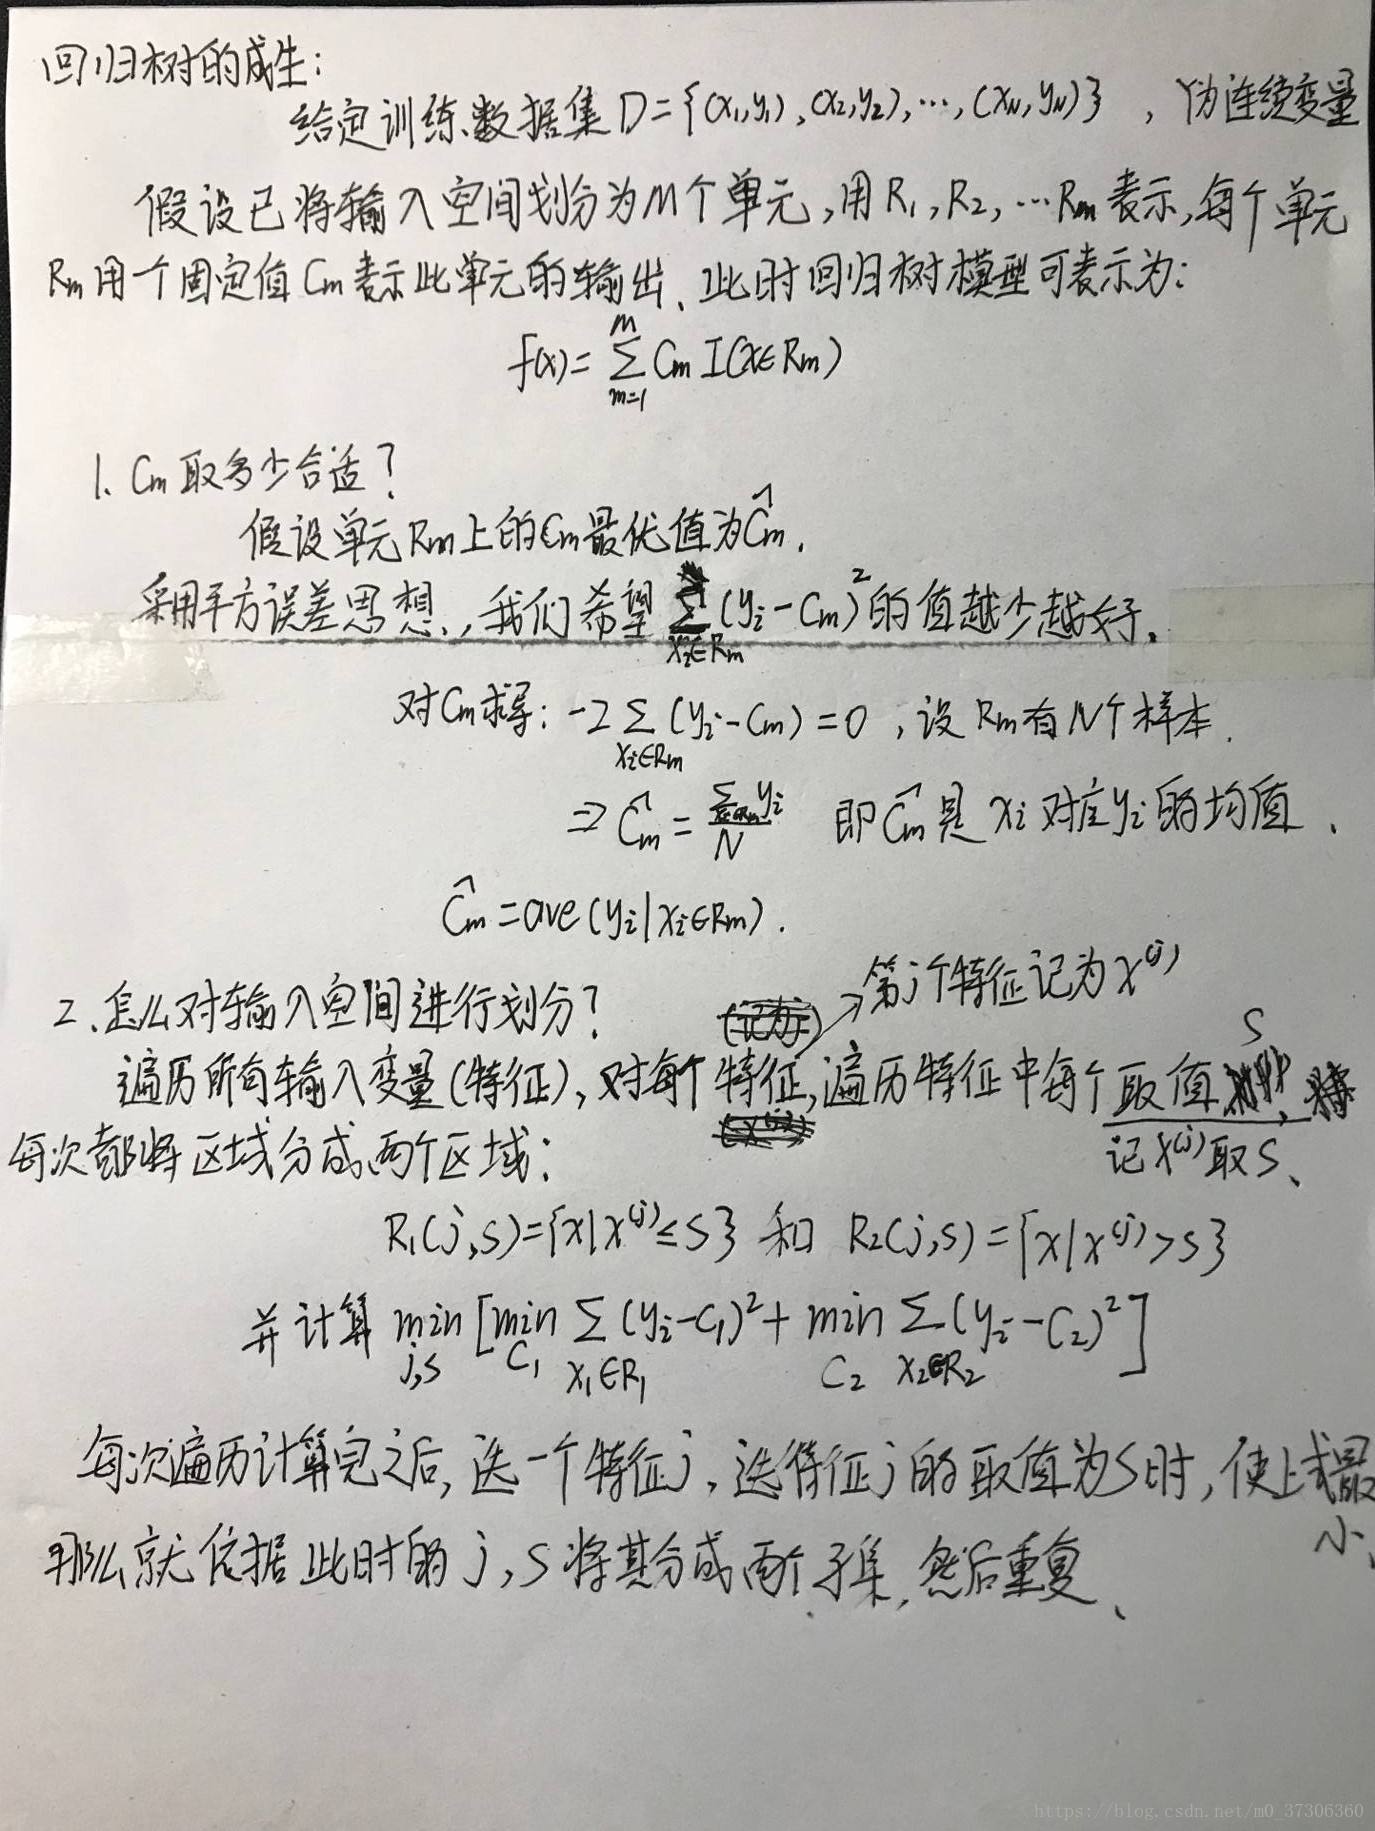 回归树的成生:
给定训练数据集D={(x₁,y₁),(x₂,y₂),…,(x_N,y_N)},Y为连续变量
假设已将输入空间划分为M个单元,用R₁,R₂,…Rm表示,每个单元
Rm用一个固定值Cm表示此单元的输出、此时回归树模型可表示为:
f(x)=∑_{m=1}^{M} Cm I(x∈Rm)
1. Cm取多少合适?
假设单元Rm上的Cm最优值为Ĉm.
采用平方误差思想,我们希望∑_{xi∈Rm}(yi-Cm)²的值越少越好。
对Cm求导:-2∑_{xi∈Rm}(yi-Cm)=0,设Rm有N个样本.
⇒Ĉm=∑_{xi∈Rm}yi/N 即Ĉm是xi对应yi的均值、
Ĉm=ave(yi|xi∈Rm).
2、怎么对输入空间进行划分?
→第j个特征记为x⁽ʲ⁾
遍历所有输入变量(特征),对每个特征,遍历特征中每个取值S,
记x⁽ʲ⁾取S、
每次都将区域分成两个区域:
R₁(j,s)={x|x⁽ʲ⁾≤s}和R₂(j,s)={x|x⁽ʲ⁾>s}
并计算 min_{j,s}[min_{C₁}∑_{x₁∈R₁}(yi-C₁)²+min_{C₂}∑_{x₂∈R₂}(yi-C₂)²]
每次遍历计算完之后,选一个特征j,选特征j的取值为S时,使上式最
小、
那么就依据此时的j,s将其分成两个子集,然后重复、
https://blog.csdn.net/m0_37306360